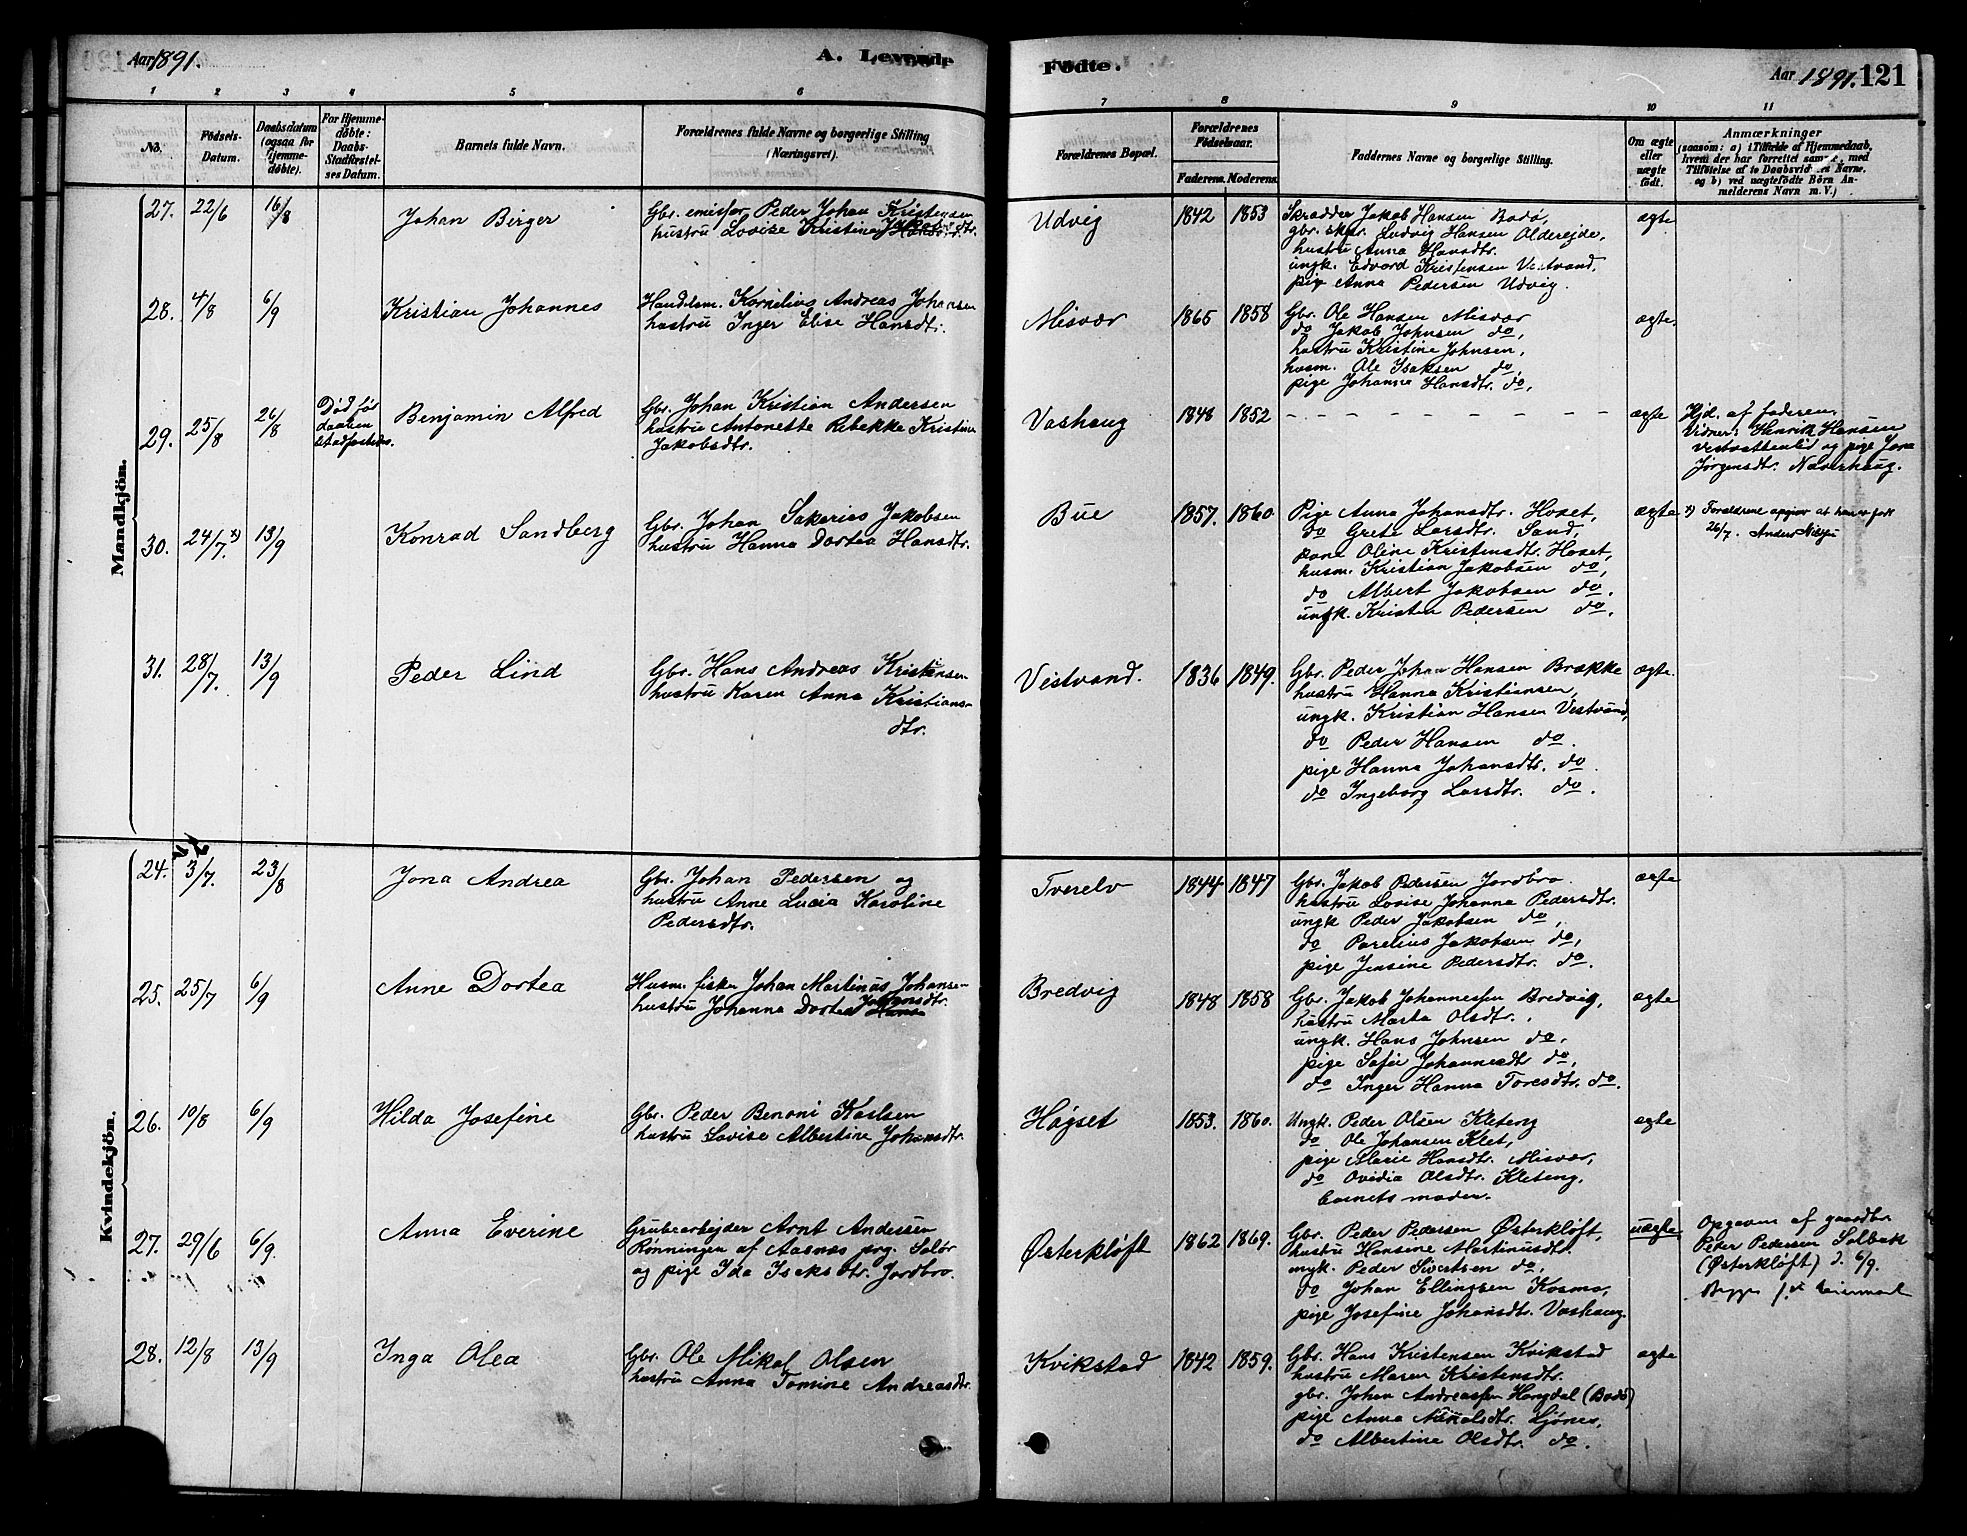 Aar 1891.
A. Levende
Fødte.
Aar 1891.
121
1
2
3
4
5
6
7
8
9
10
11
No.
Fødsels-
Datum.
Daabsdatum
(ogsaa for
Hjemme-
døbte).
For Hjemme-
døbte:
Daabs-
Stadfæstel-
ses Datum.
Barnets fulde Navn.
Forældrenes fulde Navne og borgerlige Stilling
(Næringsvei).
Forældrenes Bopæl.
Forældrenes
Fødselsaar.
Faderens.
Moderens.
Faddernes Navne og borgerlige Stilling.
Om ægte
eller
uægte
født.
Anmærkninger
(saasom: a) i Tilfælde af Hjemmedaab,
hvem der har forrettet samme, med
Tilføielse af to Daabsvidners Navne,
og b) ved uægtefødte Børn An-
melderens Navn m. V.)
Mandkjön.
27. 22/6 16/8
Johan Birger
Gbr. emissær Peder Johan Kristensen
hustru Lovise Kristine
Udvig
1842 1853
Skrædder Jakob Hansen Bodø,
gbr. Ludvig Hansen Oldereide,
hustru Anna Hansdtr.
ungk. Edvard Kristensen Vestvand,
pige Anna Pedersen Udvig.
ægte
28. 4/8 6/9
Kristian Johannes
Handelsm. Kornelius Andreas Johansen
hustru Inger Elise Hansdtr.
Misvær
1865 1858
Gbr. Ole Hansen Misvær
do Jakob Johnsen do,
hustru Kristine Johnsen,
husm. Ole Isaksen do,
pige Johanna Hansdtr. do,
ægte.
29. 25/8 26/8
Død før
daaben
stadfæstedes.
Benjamin Alfred
Gbr. Johan Kristian Andersen
hustru Antonette Rebekke Kristine
Jakobsdtr.
Vashaug
1848 1852
- - - - - - - - -
ægte
Hjd. af faderen.
Vidner: Henrik Hansen
Vestvatthenlid og pige Jona
Jørgensdtr. Næverhaug.
30. 24/7. x) 13/9
Konrad Sandberg
Gbr. Johan Sakarias Jakobsen
hustru Hanna Dortea Hansdtr.
Bue
1857. 1860
Pige Anna Johansdtr. Hoset,
do Grete Larsdtr. Sand,
kone Oline Kristensdtr. Hoset,
husm. Kristian Jakobsen do,
do Albert Jakobsen do.
ungk. Kristen Pedersen do.
ægte
x) Forældrene opgiver at han er født
26/7. Anders
31. 28/7. 13/9
Peder Lind
Gbr. Hans Andreas Kristensen
hustru Karen Anna Kristians-
dtr.
Vestvand.
1836 1849.
Gbr. Peder Johan Hansen Brække
hustru Hanna Kristiansen,
ungk. Kristian Hansen Vestvand,
do Peder Hansen do.
pige Hanna Johansdtr. do
do Ingeborg Larsdtr. do.
ægte.
Kvindekjön.
24. 3/7. 23/8
Jona Andrea
Gbr. Johan Pedersen og
hustru Anne Lucia Karoline
Pedersdtr.
Tverelv
1844 1847
Gbr. Jakob Pedersen Jordbro
hustru Lovise Johanna Pedersdtr.
ungk. Peder Jakobsen do,
do Parelius Jakobsen do,
pige Jensine Pedersdtr. do.
ægte
25. 25/7 6/9
Anne Dortea
Husm. fisker Johan Martinus Johansen
hustru Johanna Dortea Johansdtr.
Bredvig
1848 1858
Gbr. Jakob Johannessen Bredvig,
hustru Marta Olsdtr.,
ungk. Hans Johnsen do,
pige Sofie Johannesdt do,
do Inger Hanna Toresdtr. do.
ægte
26. 10/8 6/9
Hilda Josefine
Gbr. Peder Benoni Karlsen
hustru Lovise Albertine Johansdtr.
Høgset
1853. 1860.
Ungk. Peder Olsen Kleteng
do Ole Johansen Klet,
pige Marie Hansdtr. Misvær,
do Ovidia Olsdtr. Kleteng.
barnets moder.
ægte
27. 29/6 6/9.
Anna Everine
Grubearbejder Arnt Andersen
Rønningen af Aasnæs prg. Solør
og pige Ida Isaksdtr. Jordbro.
Østerkløft
1862 1869.
Gbr. Peder Pedersen Østerkløft,
hustru Hansine Martinusdtr.
ungk. Peder Sivertsen do.
do Johan Ellingsen Kosmo,
pige Josefine Johansdtr. Vashaug.
uægte
Opgaven af gaardbr.
Peder Pedersen Solbak
(Østerkløft) d. 6/9.
Begges 1ste leiermaal
28. 12/8 13/9
Inga Olea
Gbr. Ole Mikal Olsen
hustru Anna Tomine Andreasdtr.
Kvikstad
1842 1859.
Gbr. Hans Kristensen Kvikstad
hustru Maren Kristensdtr.
gbr. Johan Andreassen Hongdal (Bodø)
pige Anna Mikalsdtr. Ljønes,
do Albertine Olsdtr. do.
ægte